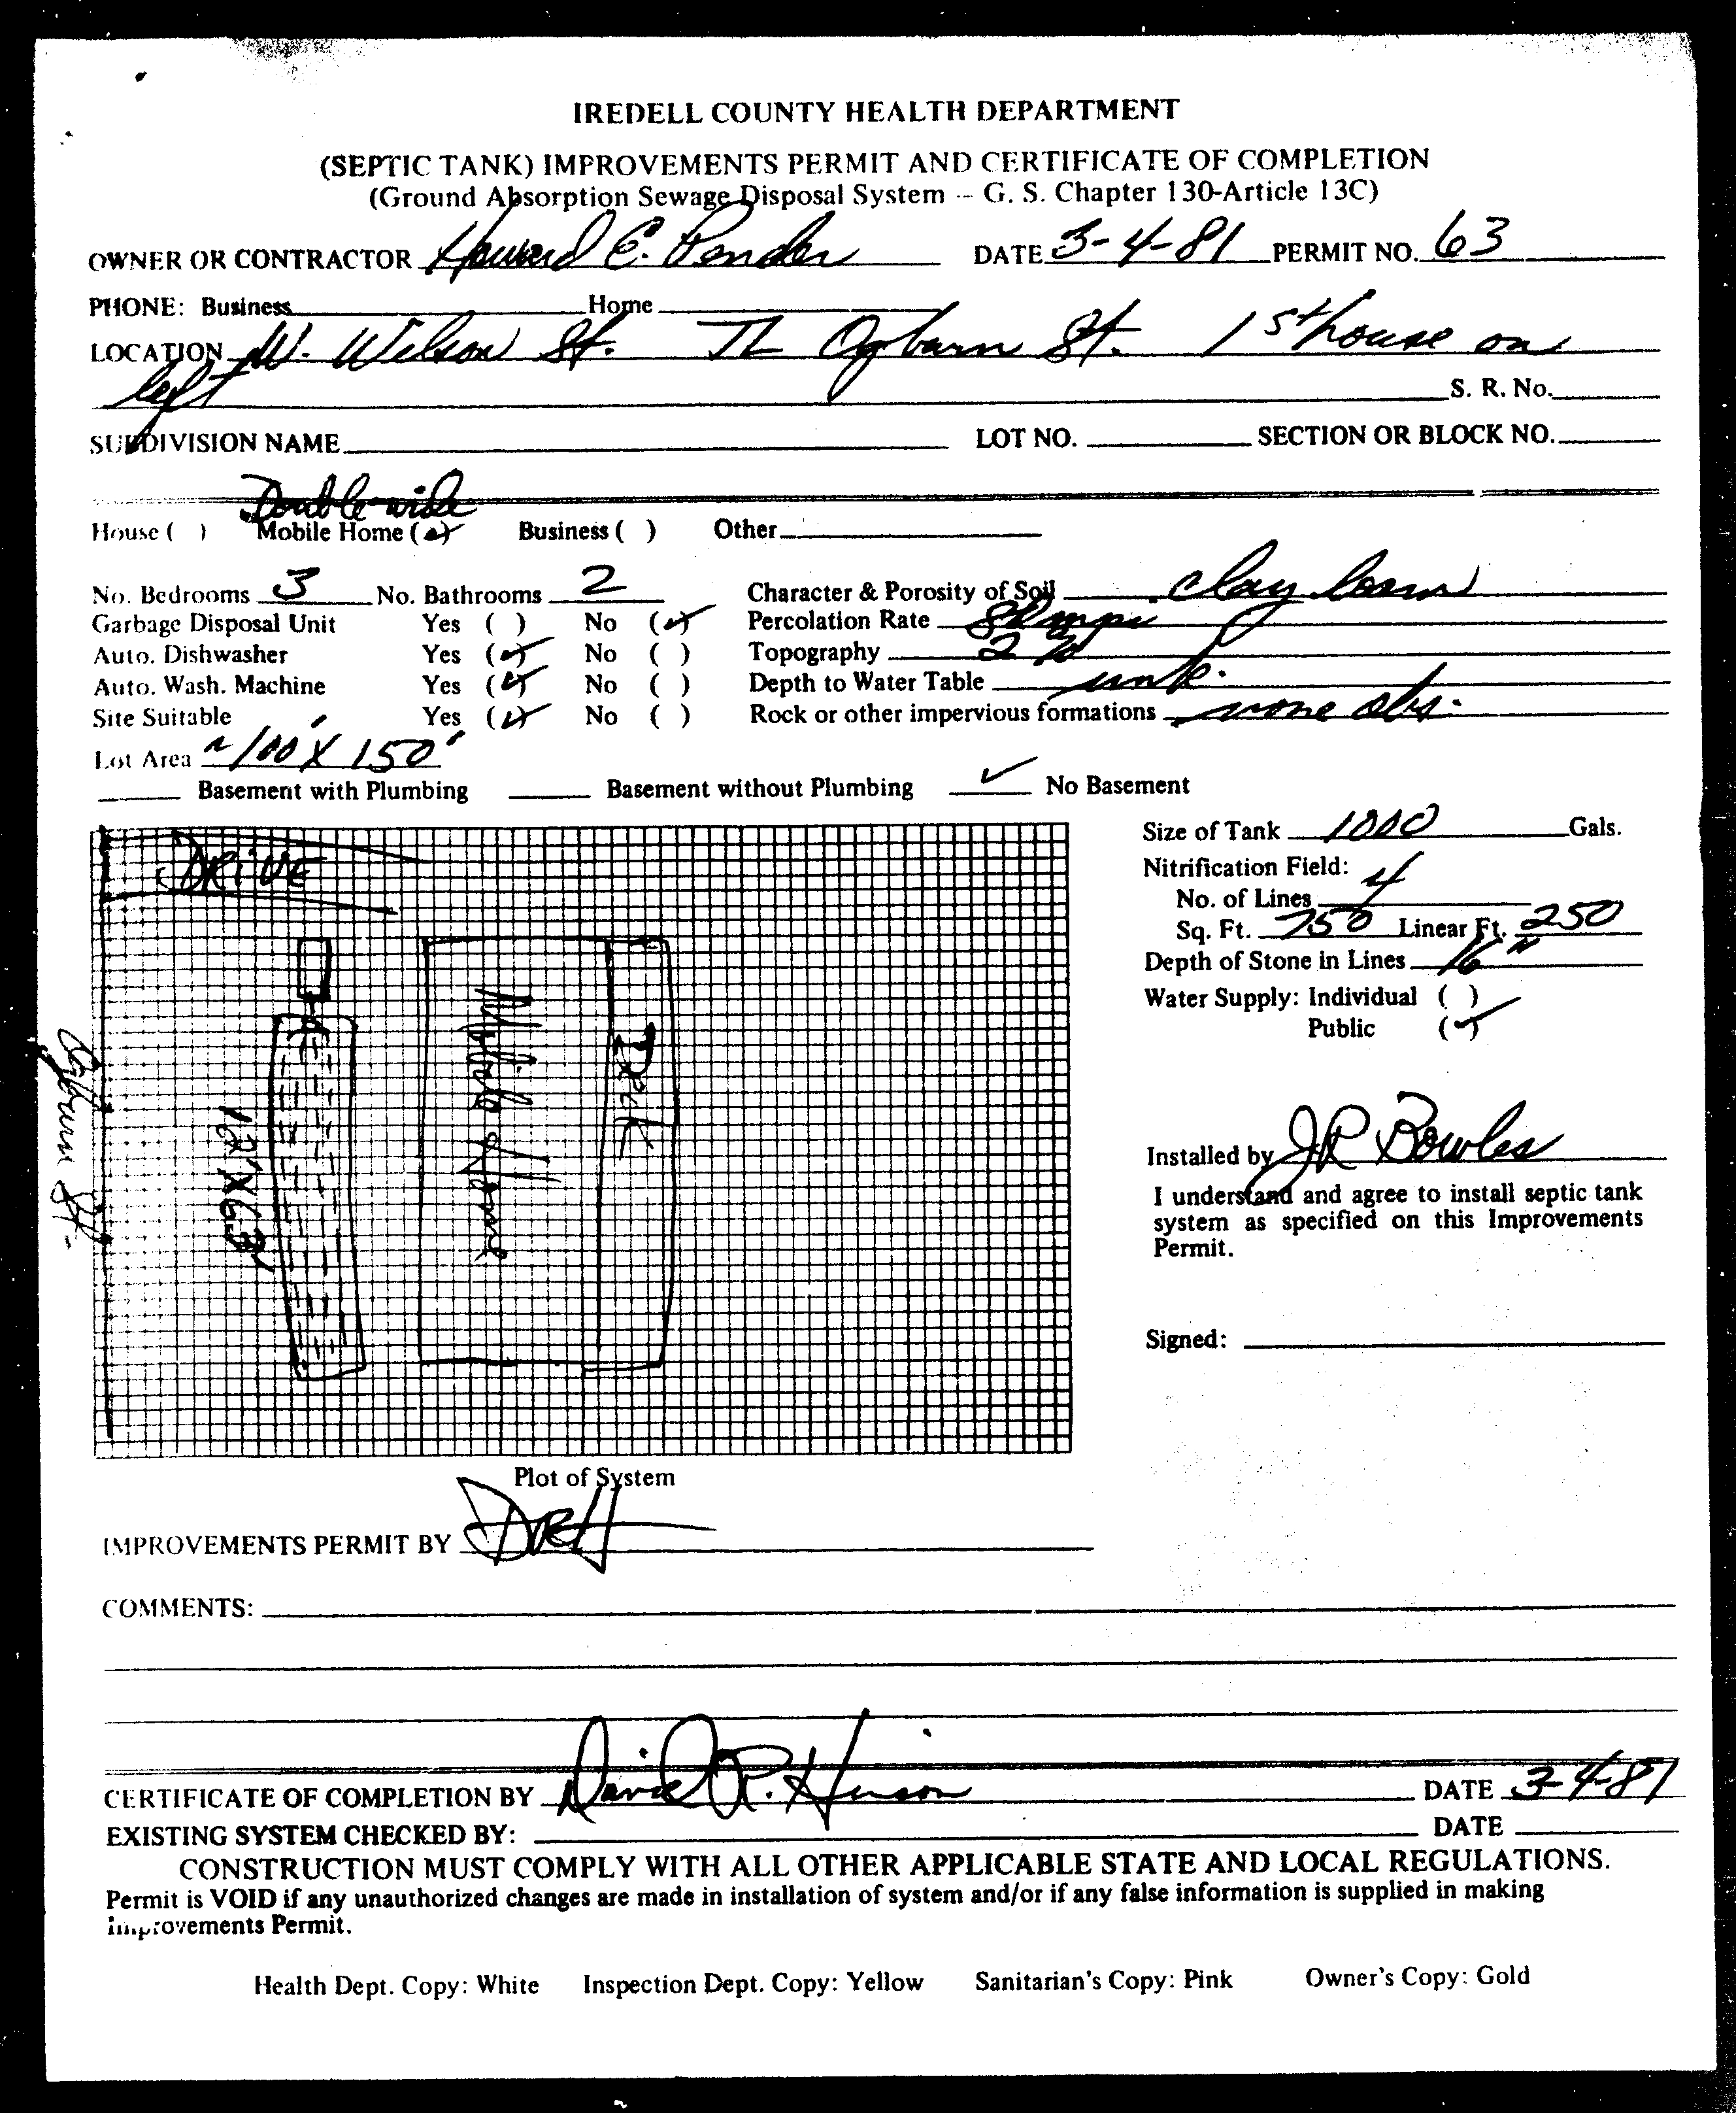 IREDELL COUNTY HEALTH DEPARTMENT
(SEPTIC TANK) IMPROVEMENTS PERMIT AND CERTIFICATE OF COMPLETION
(Ground Absorption Sewage Disposal System -- G. S. Chapter 130-Article 13C)
OWNER OR CONTRACTOR Howard E. Pender DATE 3-4-81 PERMIT NO. 63
PHONE: Business Home
LOCATION W. Wilson St. TL Ogburn St. 1st house on
left S. R. No.
SUBDIVISION NAME LOT NO. SECTION OR BLOCK NO.
Double-wide
House ( ) Mobile Home (✓) Business ( ) Other
No. Bedrooms 3 No. Bathrooms 2 Character & Porosity of Soil clay loam
Garbage Disposal Unit Yes ( ) No (✓) Percolation Rate
Auto. Dishwasher Yes (✓) No ( ) Topography 2 %
Auto. Wash. Machine Yes (✓) No ( ) Depth to Water Table unk.
Site Suitable Yes (✓) No ( ) Rock or other impervious formations none obs.
Lot Area ~100' X 150'
Basement with Plumbing Basement without Plumbing ✓ No Basement
DRIVE
Mobile Home
Deck
12'X63'
Ogburn St.
Size of Tank 1000 Gals.
Nitrification Field:
No. of Lines 4
Sq. Ft. 750 Linear Ft. 250
Depth of Stone in Lines 16"
Water Supply: Individual ( )
Public (✓)
Installed by JR Bowles
I understand and agree to install septic tank
system as specified on this Improvements
Permit.
Signed:
Plot of System
IMPROVEMENTS PERMIT BY DRH
COMMENTS:
CERTIFICATE OF COMPLETION BY David R. Hinson DATE 3-4-81
EXISTING SYSTEM CHECKED BY: DATE
CONSTRUCTION MUST COMPLY WITH ALL OTHER APPLICABLE STATE AND LOCAL REGULATIONS.
Permit is VOID if any unauthorized changes are made in installation of system and/or if any false information is supplied in making
Improvements Permit.
Health Dept. Copy: White Inspection Dept. Copy: Yellow Sanitarian's Copy: Pink Owner's Copy: Gold